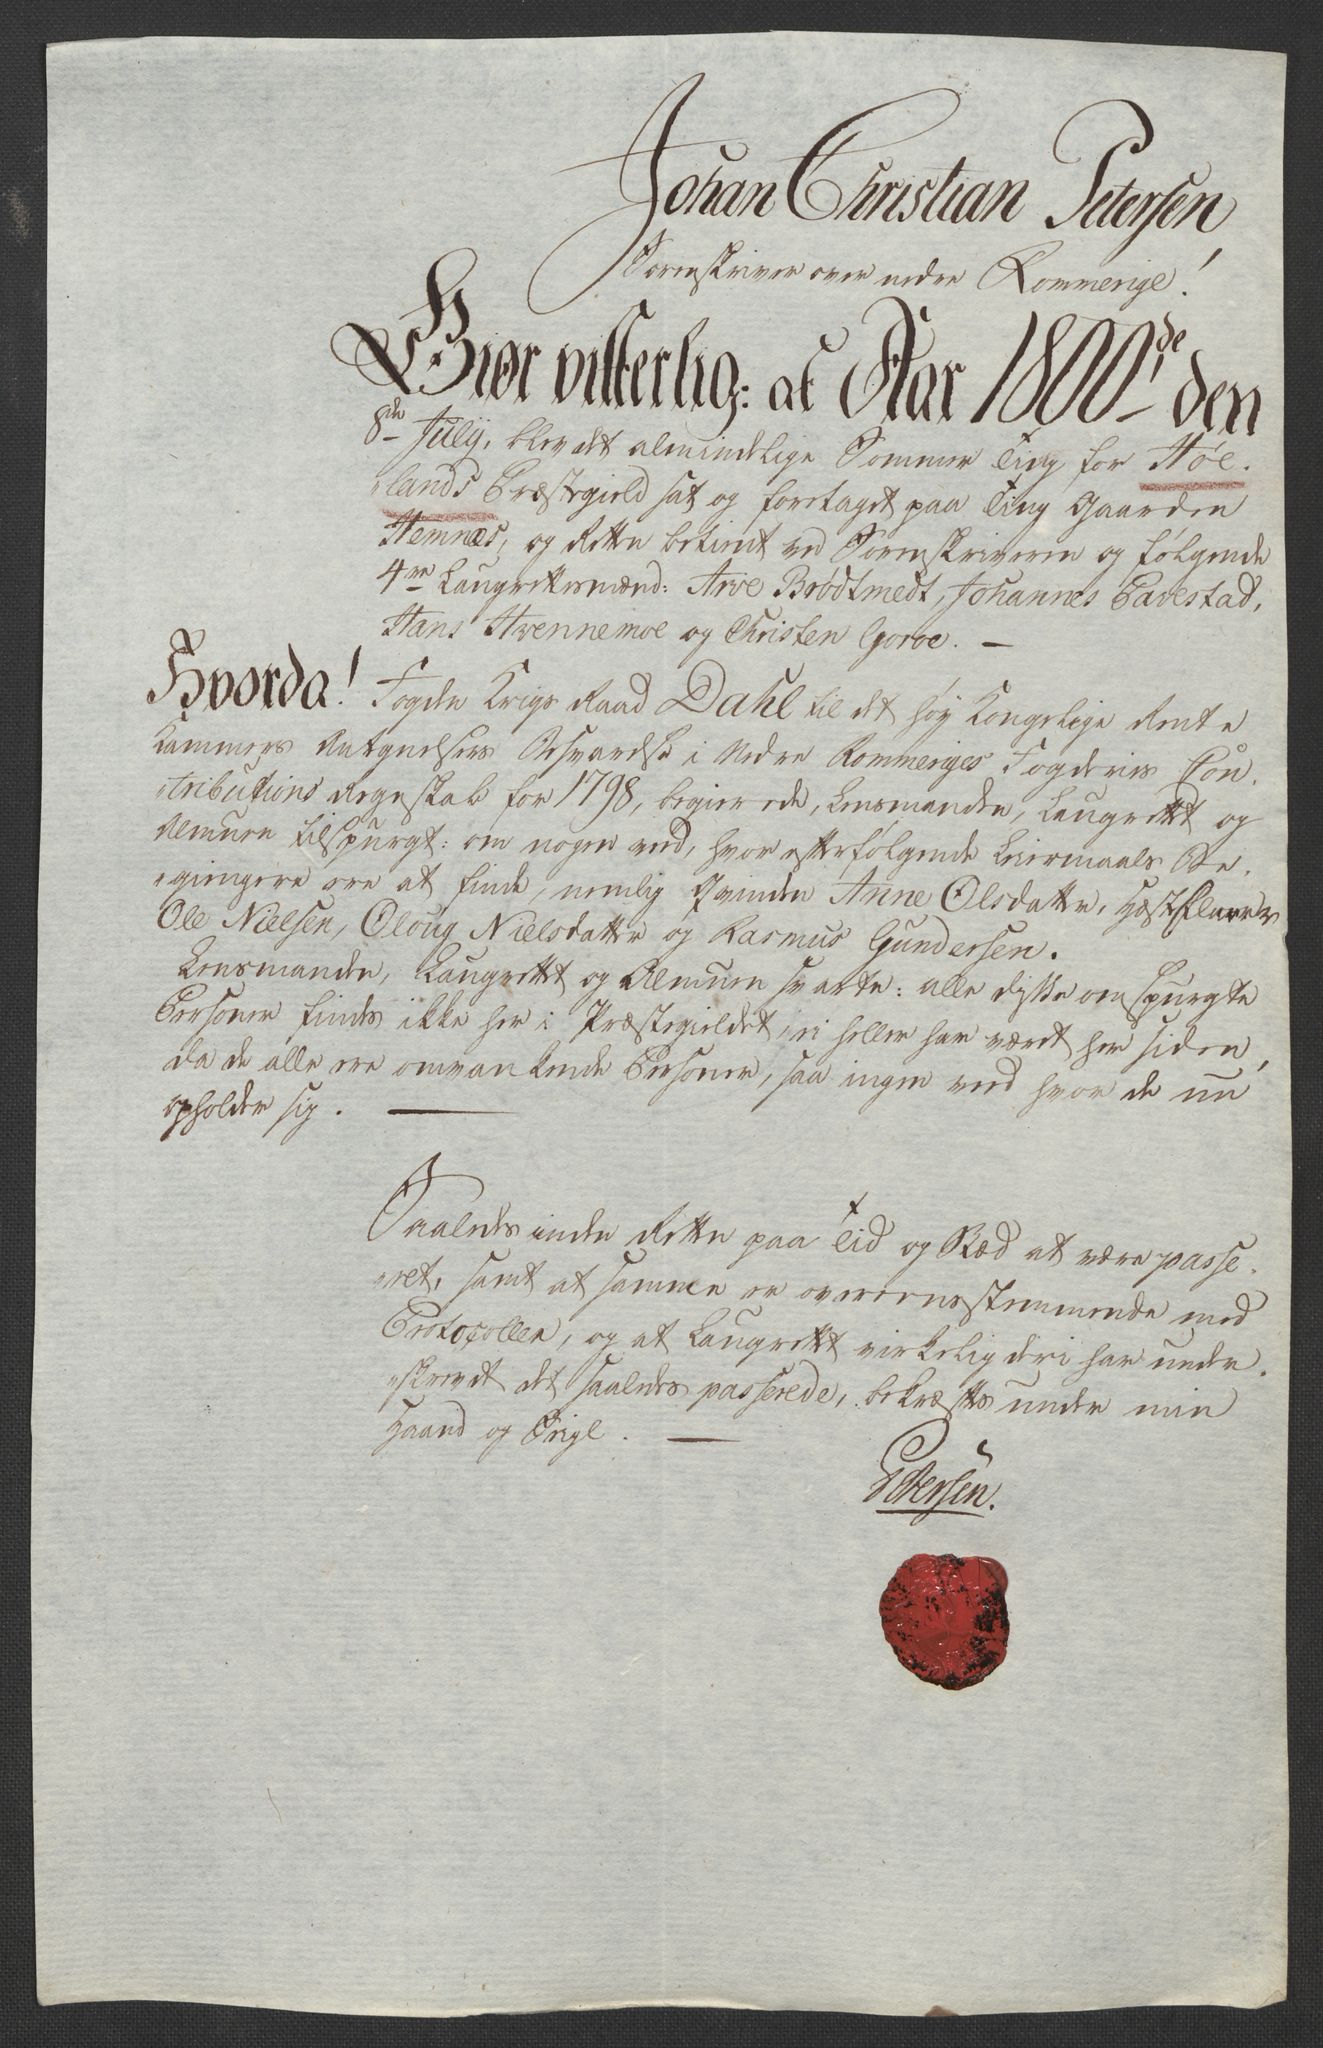 Johan Christian Petersen
Sorenskriver over nedre Rommerige!
Giør vitterlig: at Aar 1800de den
8de July, blev det almindelige Sommer Ting for Høe-
lands Præstegield sat og foretaget paa Ting Gaarden
Hemnæs, og Retten betient ved Sorenskriveren og følgende
4re Laugrettesmænd: Arve Brødtmedt, Johannes Tavestad,
Hans Hvennemoe og Christen Goroe. —
Hvorda! Fogden Krigs Raad Dahl til det høy Kongelige Rente
Kammers Antegnelsers Besvarelse i Nedre Rommeriges Fogderies Con-
tributions Regnskab for 1798, begierede, Lensmanden, Laugrettet og
Almuen tilspurgt: om nogen veed, hvor efterfølgende Leiermaals Be-
giengere ere at finde, nemlig Qvinden Anne Olsdatter, Hæstskierer
Ole Nielsen, Oloug Nielsdatter og Rasmus Gundersen.
Lensmanden, Laugrettet og Almuen svarte: alle disse omspurgte
Personer findes ikke her i Præstegieldet, ei heller har været her siden,
da de alle ere omvankende Personer, saa ingen veed hvor de nu
opholder sig. —
Saaledes inden Retten paa Tid og Stæd at være passe-
ret, samt at samme er overeensstemmende med
Protocollen, og at Laugrettet virkelig deri har under-
skrevet det saaledes passerede, bekræftes under min
Haand og Seigl. —
Petersen.